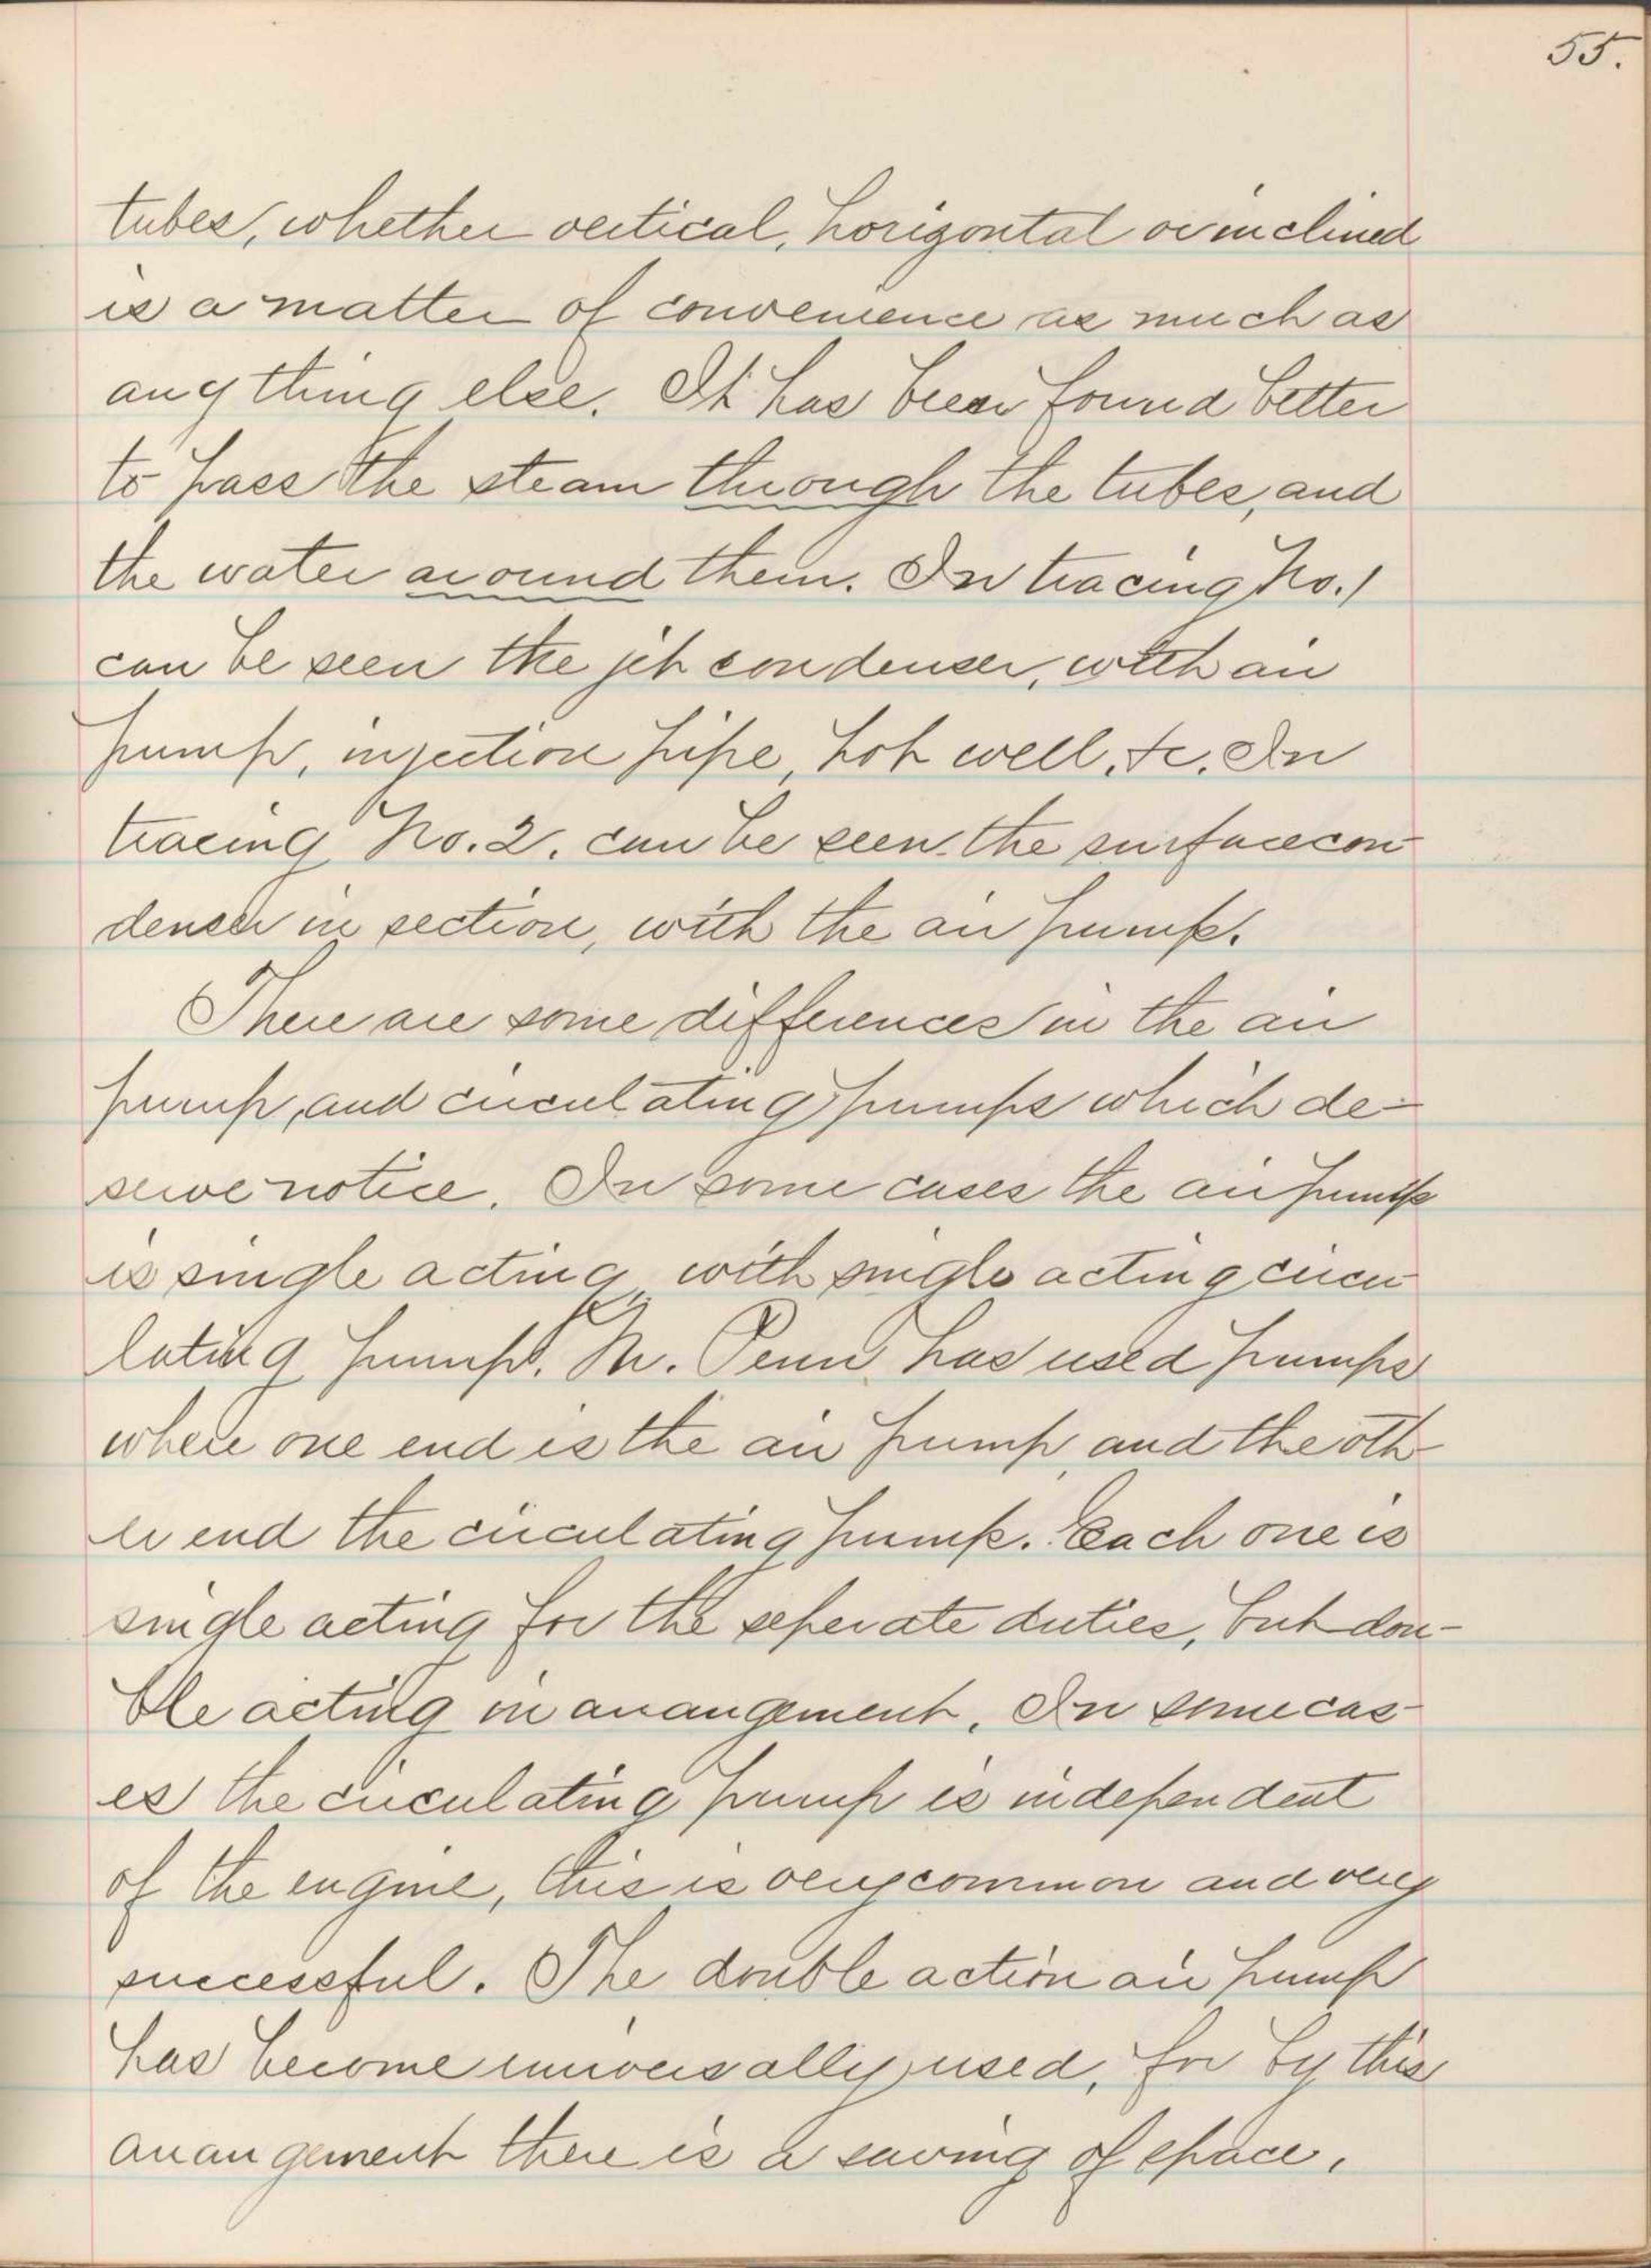 55.
tubes, whether vertical, horizontal or inclined
is a matter of convenience as much as
anything else. It has been found better
to pass the steam through the tubes, and
the water around them. In tracing No. 1
can be seen the jet condenser, with air
pump, injection pipe, hot well, &c. In
tracing No. 2. can be seen the surface con-
denser in section, with the air pump.
There are some differences in the air
pump, and circulating pumps which de-
serve notice. In some cases the air pump
is single acting, with single acting circu-
lating pump. Mr. Penn has used pumps
where one end is the air pump, and the oth-
er end the circulating pump. Each one is
single acting for the seperate duties, but dou-
ble acting in arrangement. In some cas-
es the circulating pump is independent
of the engine, this is very common and very
successful. The double action air pump
has become universally used, for by this
arrangement there is a saving of space.